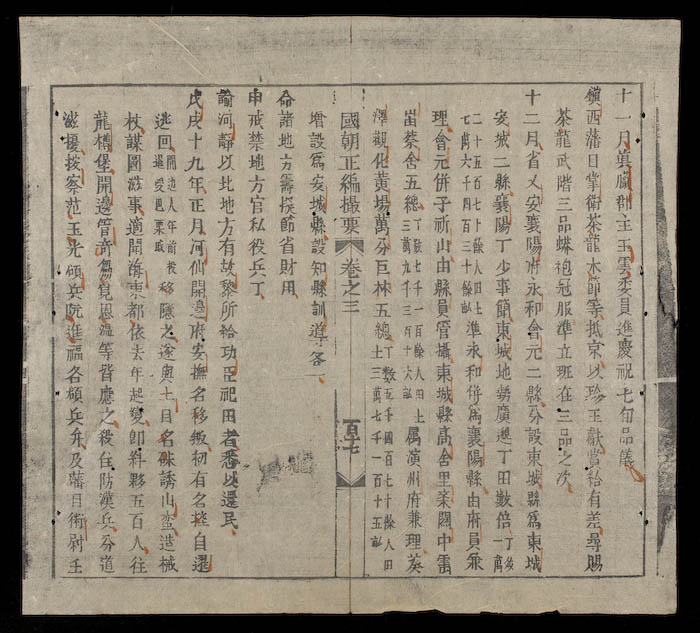 十一月真臘郡主玉雲委員進慶祝七旬品儀
鎮西藩目掌衛茶龍木節等抵京以珍玉獻賞給有差尋賜
茶龍武階三品蟒袍冠服準立班在三品之次
十二月省乂安襄陽府永和會元二縣分設東城縣爲東城
安城二縣襄陽丁少事簡東城地勢廣邈丁田數倍丁後一萬
二千五百七十餘人田土七萬六千四百三十餘畝準永和併爲襄陽縣由府員兼
理會元併子祈山由縣員管攝東城縣高舍里柴關中雷
苗蔡舍五總丁數七千一百餘人田土三萬九千三百十六畝屬演州府兼理葵
澤觀化黃場萬分巨林五總丁數五千四百七十餘人田土三萬七千一百十五畝
國朝正編撮要 卷之三 百七
增設爲安城縣設知縣訓導各一
命諸地方籌揆節省財用
申戒禁地方官私役兵丁
諭河靜以北地方有故黎所給功臣祀田者悉以還民
戊戌十九年正月河仙開邊府安撫名移緻初有名控自暹
逃回開邊人年前被暹受巴栗職移隱之遂與土目名味誘山蠻造械
杖謀圖滋事適聞海東都依去年起變卽糾夥五百人往
龍樔堡開邊管奇恩溫等皆應之殺住防漢兵分道
滋擾按察范玉光領兵阮進福各領兵弁及藩目衛尉玉